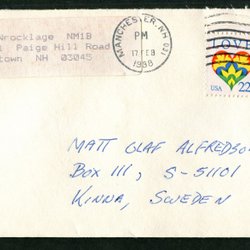 Wrocklage NM1B
Paige Hill Road
town NH 03045
MANCHESTER, NH 031
PM
17 FEB
1988
LOVE
USA 22
MATT OLAF ALFREDSO
BOX 111, S-51101
KINNA, SWEDEN